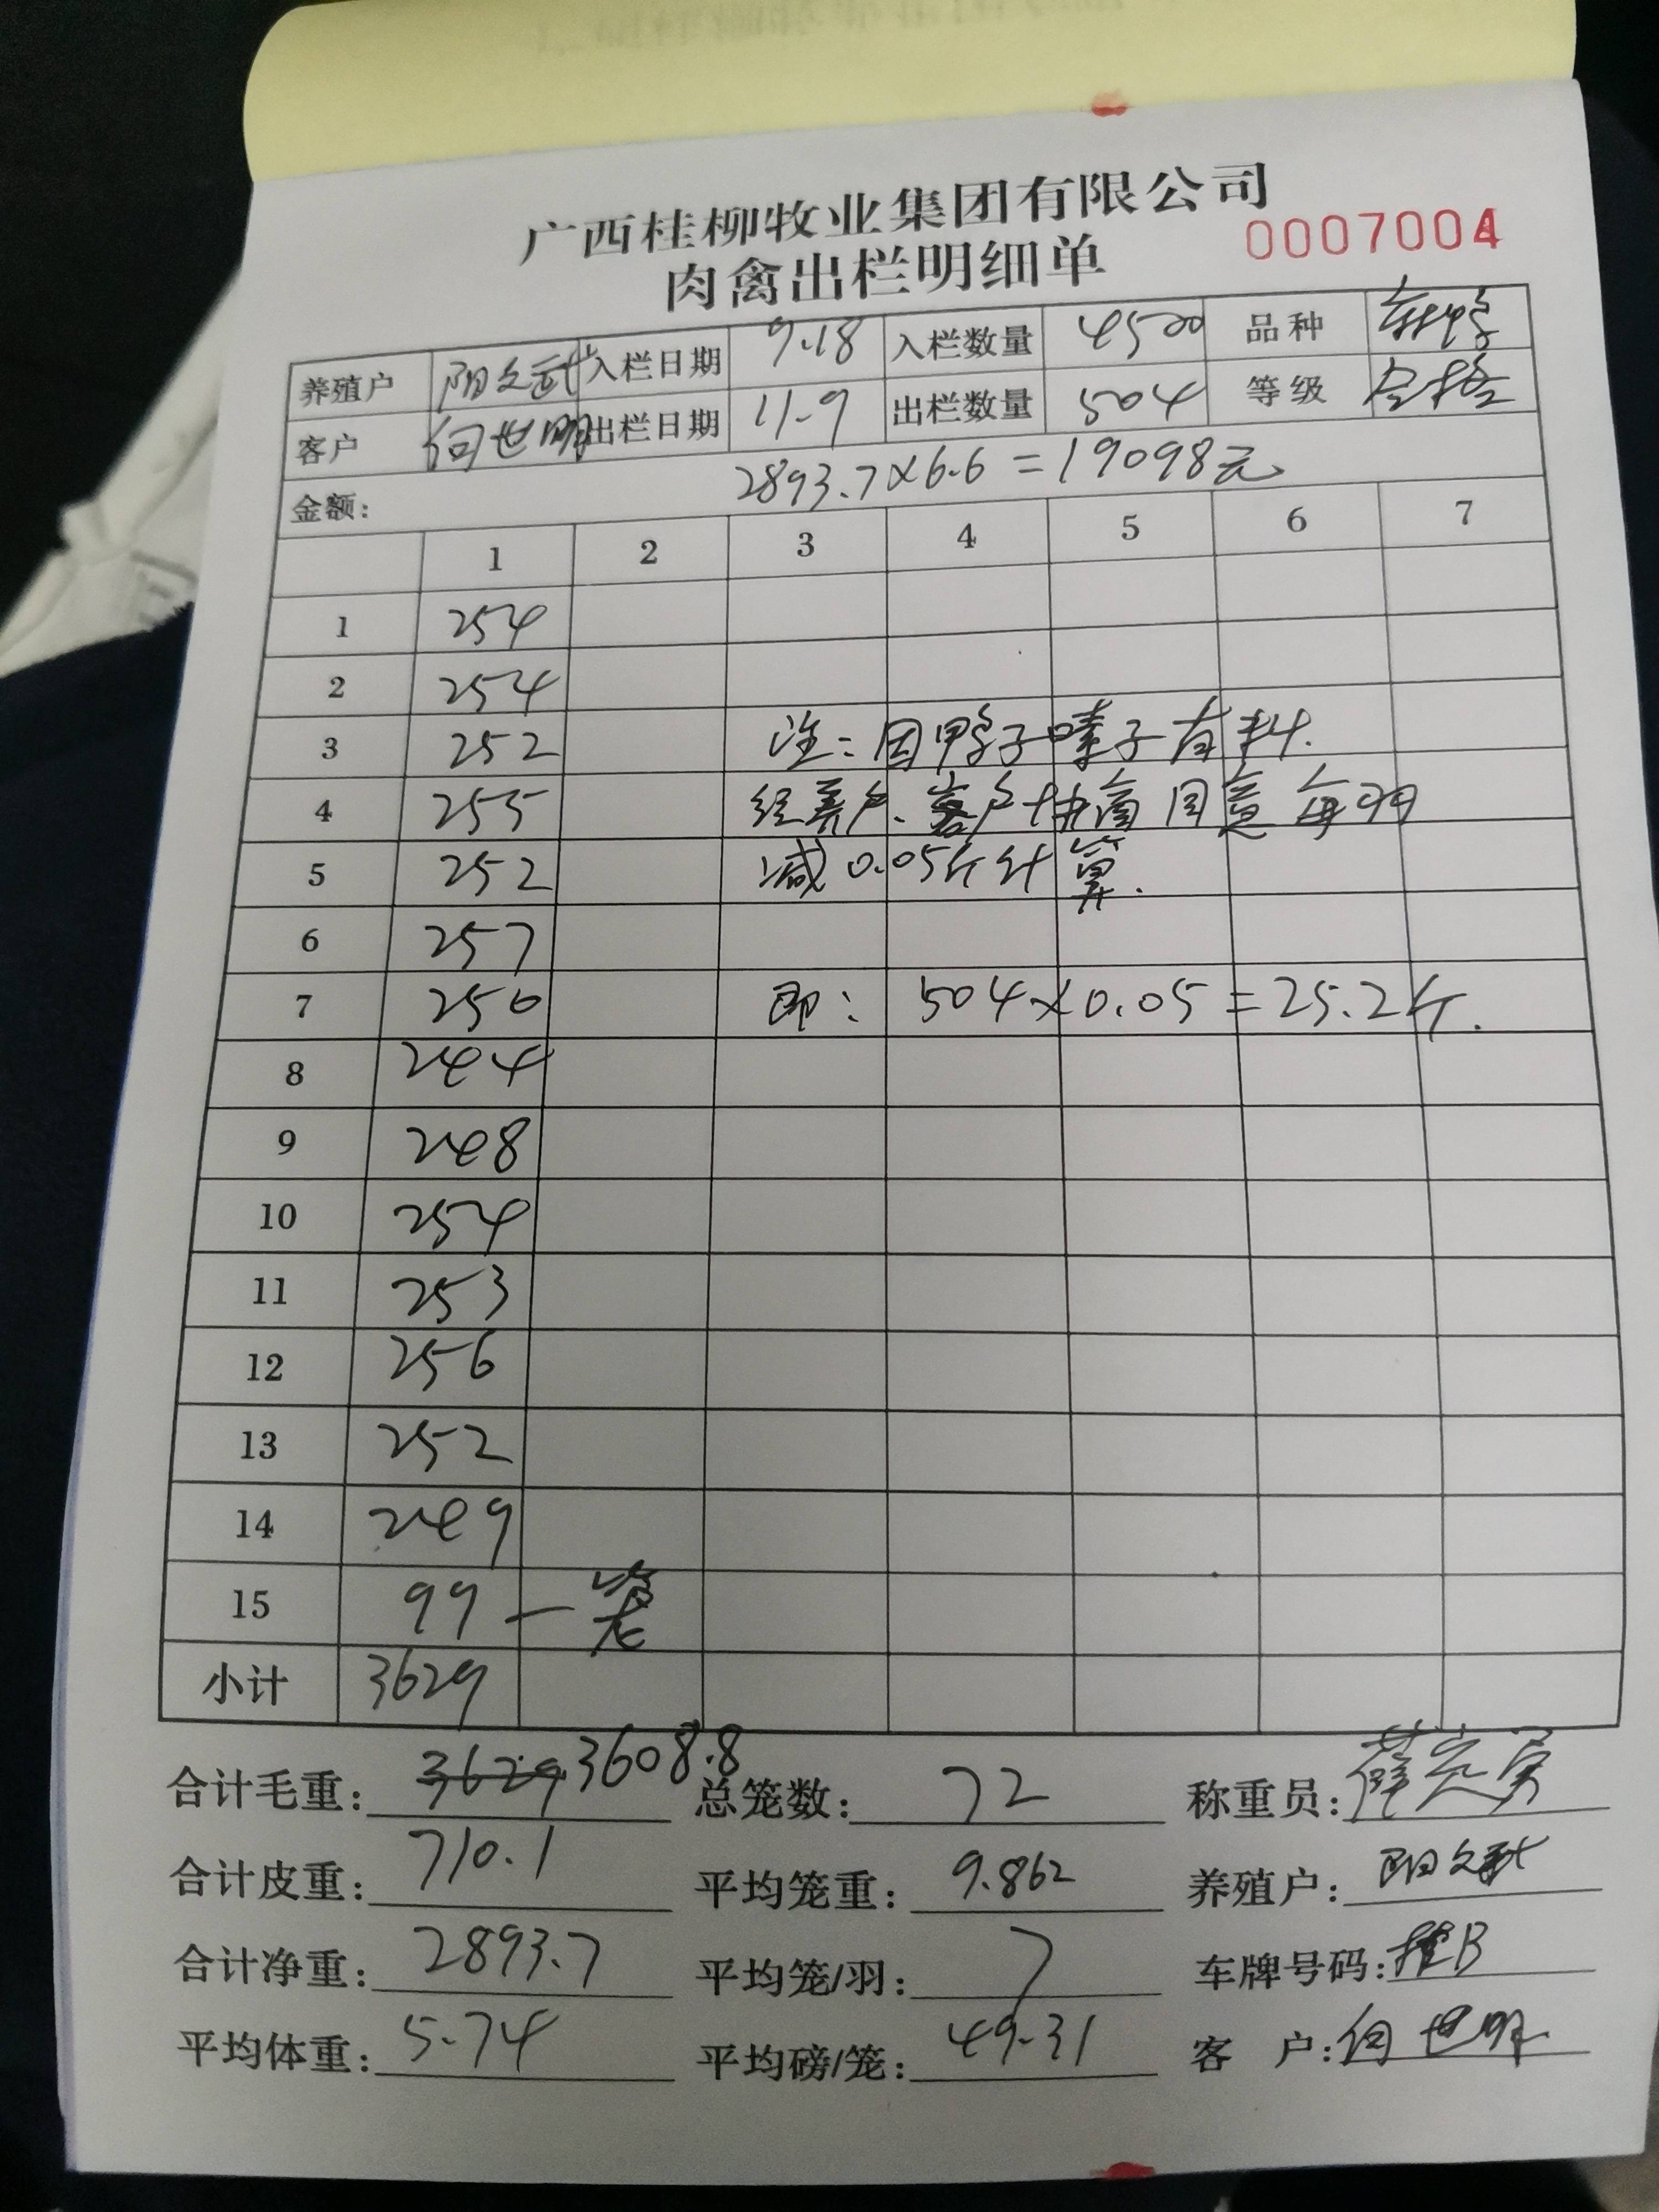 广西桂柳牧业集团有限公司
肉禽出栏明细单 0007004
养殖户 阳文武 入栏日期 9.18 入栏数量 4500 品种
客户 何世明 出栏日期 11-9 出栏数量 504 等级 合格
金额: 2893.7×6.6=19098元
1 2 3 4 5 6 7
1 254
2 254
3 252 注:因鸭子嗉子有料.
4 255 经养户、客户协商同意每羽
5 252 减0.05斤计算.
6 257
7 250 即: 504×0.05=25.2斤.
8 244
9 248
10 254
11 253
12 256
13 252
14 249
15 99 一笼
小计 3629
合计毛重: 3629 3608.8 总笼数: 72 称重员:
合计皮重: 710.1 平均笼重: 9.862 养殖户: 阳文武
合计净重: 2893.7 平均笼/羽: 7 车牌号码: 桂B
平均体重: 5.74 平均磅/笼: 49.31 客 户: 何世明